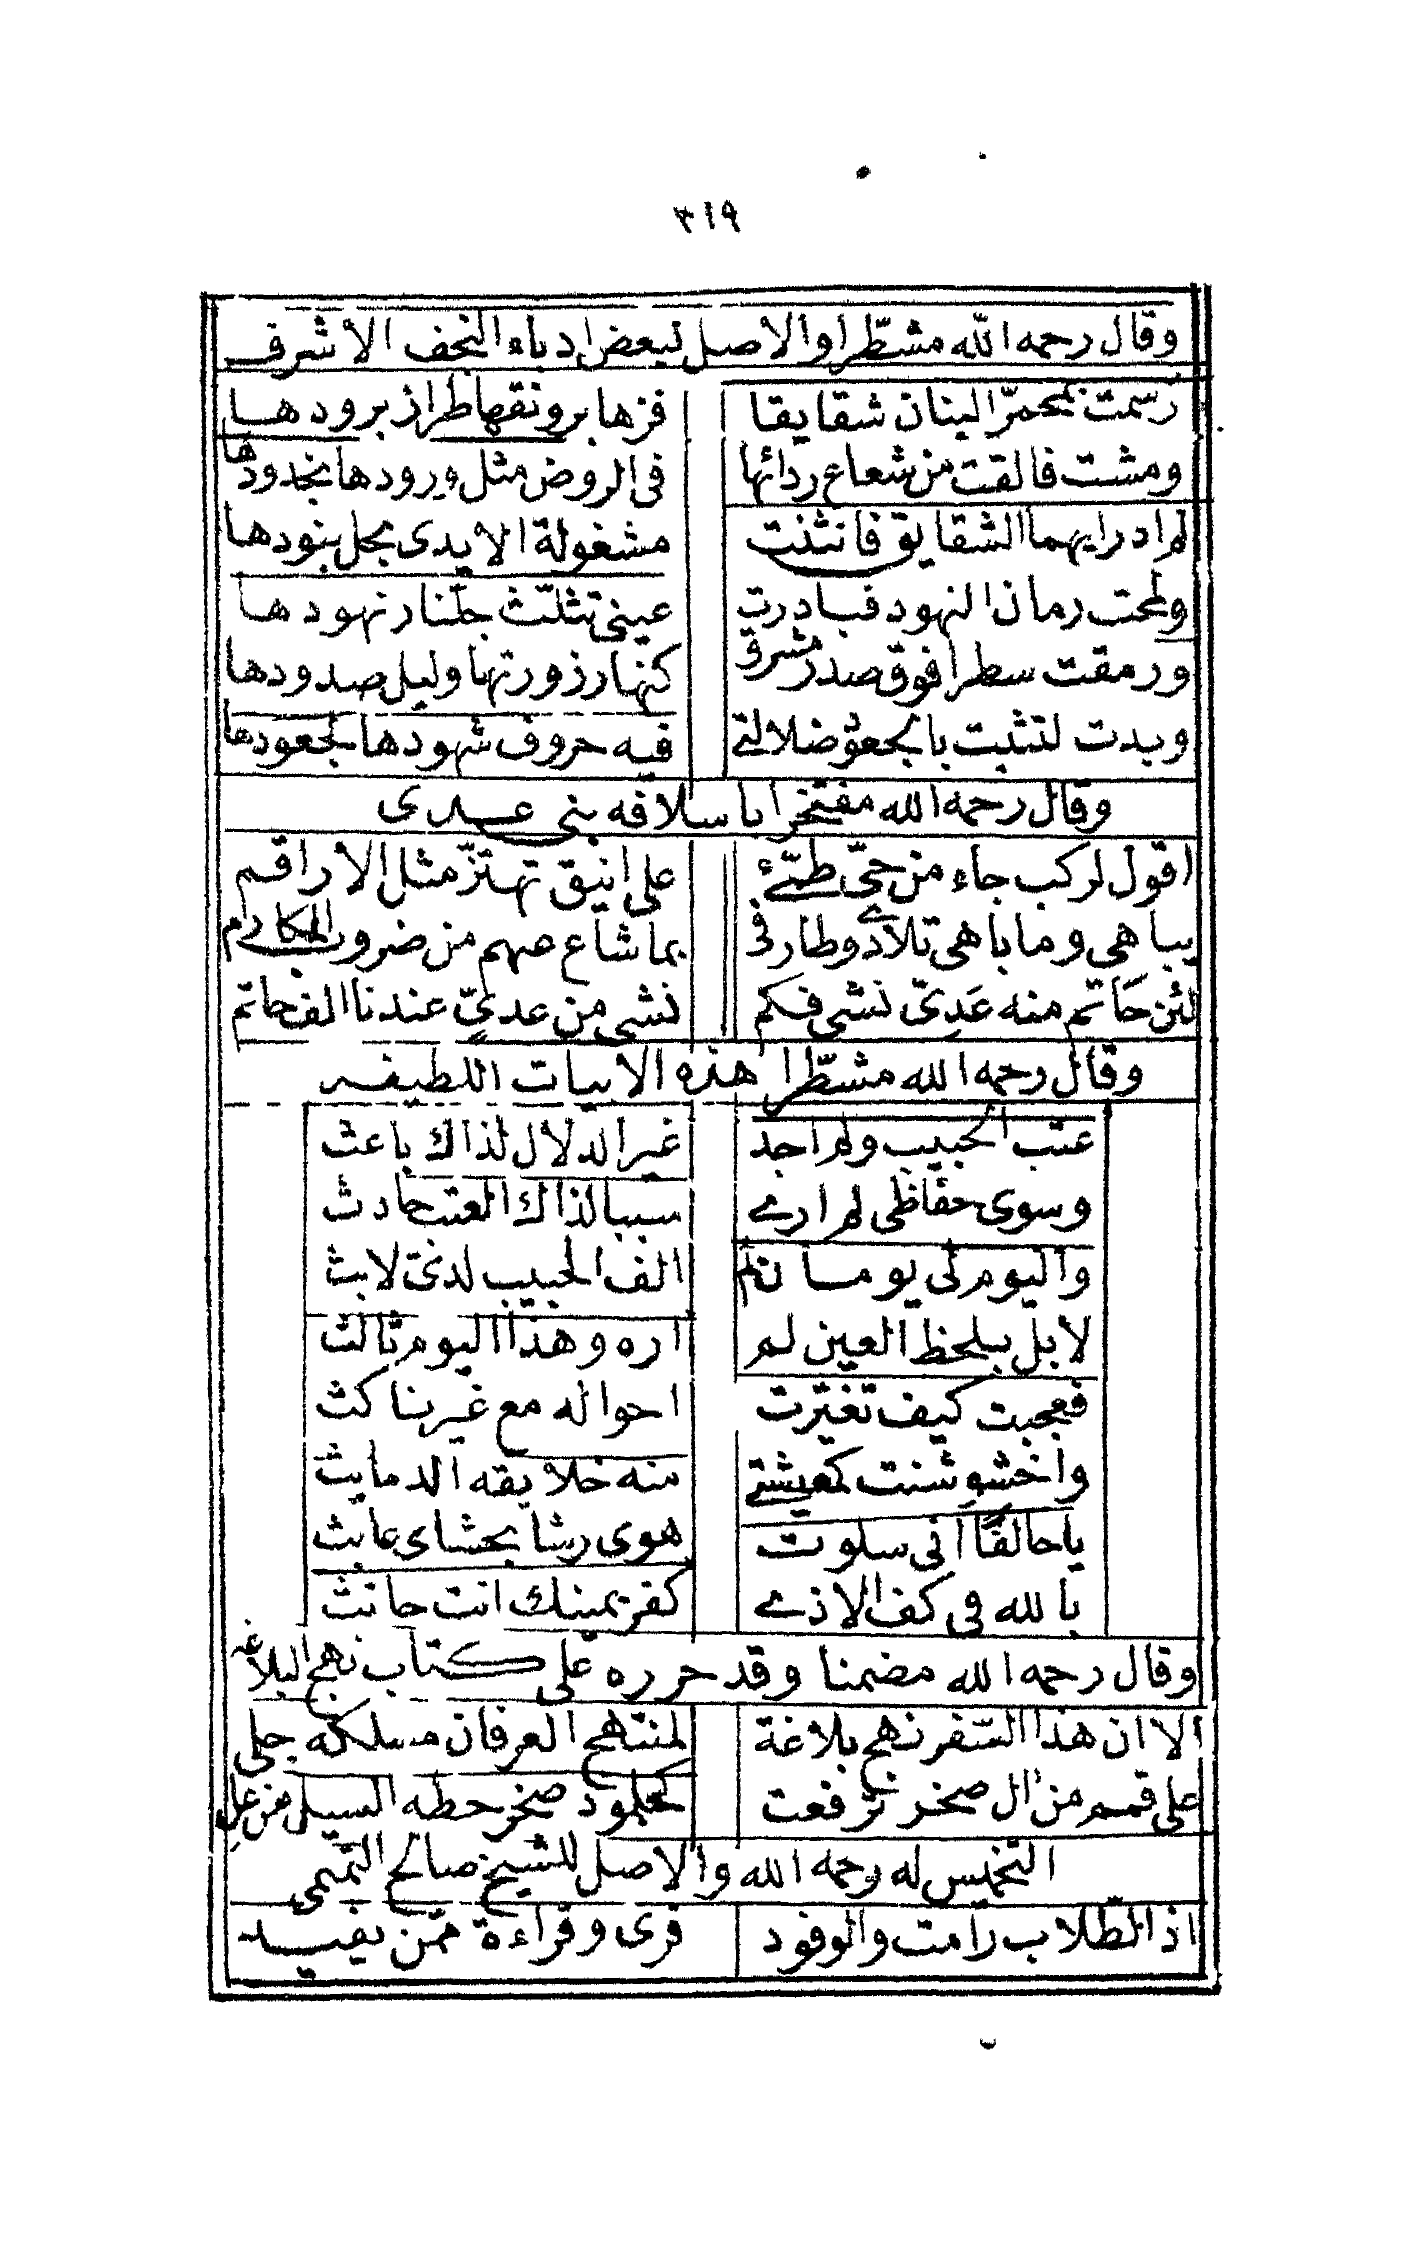 ٣١٩
وقال رحمه الله مشطّرا والاصل لبعض ادباء النجف الأشرف
رسمت بمحمرّ البنان شقايقا فزها برونقها طراز برودها
ومشت فالقت من شعاع ردائها فى الروض مثل ورودها بخدودها
لم ادر ايهما الشقايق فانثنت مشغولة الايدى بحل بنودها
ولمحت رمان النهود فبادرت عينى تثلّث جلّنار نهودها
ورمقت سطرا فوق صدر مشرق كنهار زورتها وليل صدودها
وبدت لتثبت بالجعود ضلالتى فيه حروف شهودها لجعودها
وقال رحمه الله مفتخرا باسلافه بنى عبدى
اقول لركب جاء من حىّ طىّء على انيق تهتزّ مثل الأراقم
يباهى وما باهى تلادى وطارفى بما شاع عنهم من ضروب المكارم
لئن حَاتم منه عَدِىّ نشى فكم نشى من عدىٍّ عندنا الف حاتم
وقال رحمه الله مشطّرا هذه الابيات اللطيفه
عتب الحبيب ولم اجد غير الدلال لذاك باعث
وسوى حفاظى لم ارى سببا لذاك العتب حادث
واليوم لى يومان لم الف الحبيب لدىّ لابث
لا بل بلحظ العين لم اره وهذا اليوم ثالث
فعجبت كيف تغيّرت احواله مع غير ناكث
واخشوشنت كمعيشتى منه خلايقه الدمايث
يا حالفًا انى سلوت هوى رشا بحشاى عابث
بالله فى كف الاذى كفر يمينك انت حانث
وقال رحمه الله مضمنا وقد حرره على كتاب نهج البلاغه
الا ان هذا السّفر نهج بلاغة لمنتهج العرفان مسلكه جلى
على قمم من ال صخر ترفعت كجلمود صخر حطه السيل من عل
التخميس له رحمه الله والاصل للشيخ صالح التميمى
اذا الطّلاب رامت والوفود قرى وقراءة ممّن يفيد